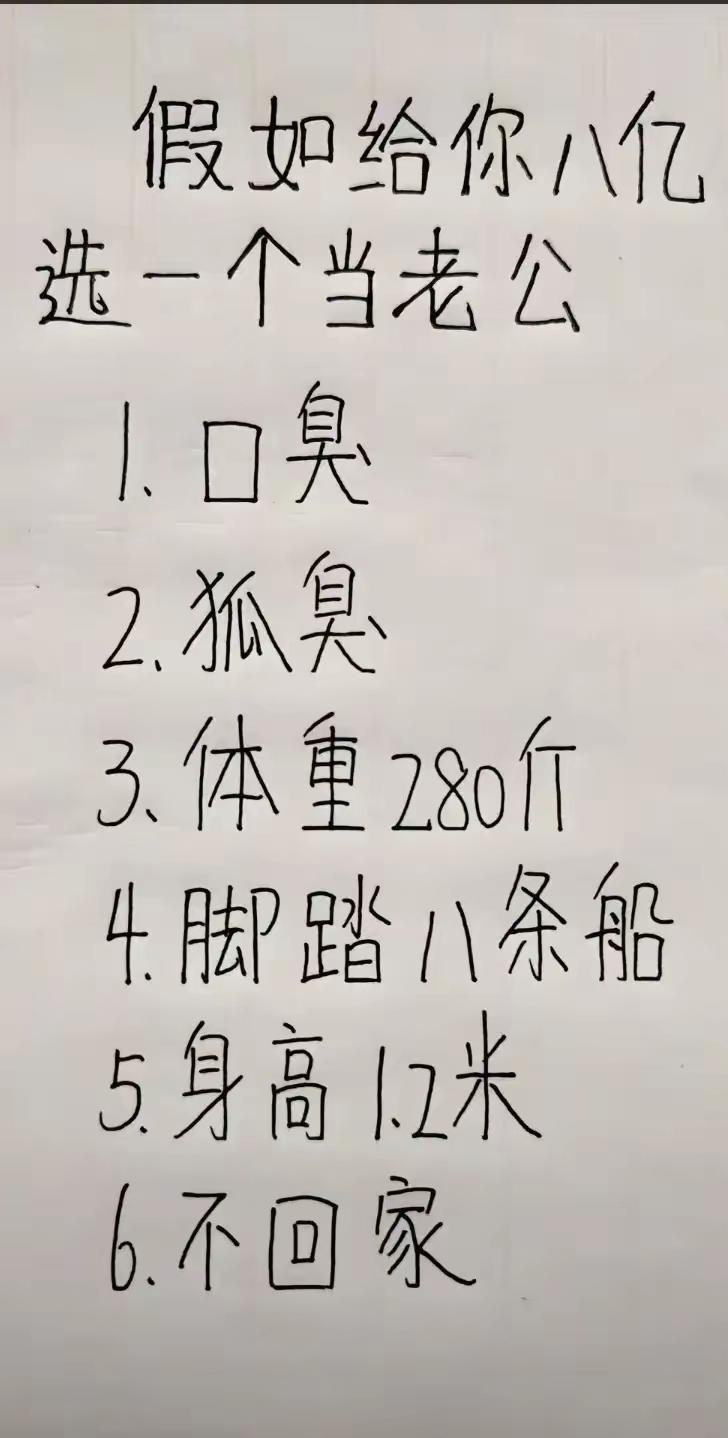 假如给你八亿
选一个当老公
1、口臭
2、狐臭
3、体重280斤
4、脚踏八条船
5、身高1.2米
6、不回家